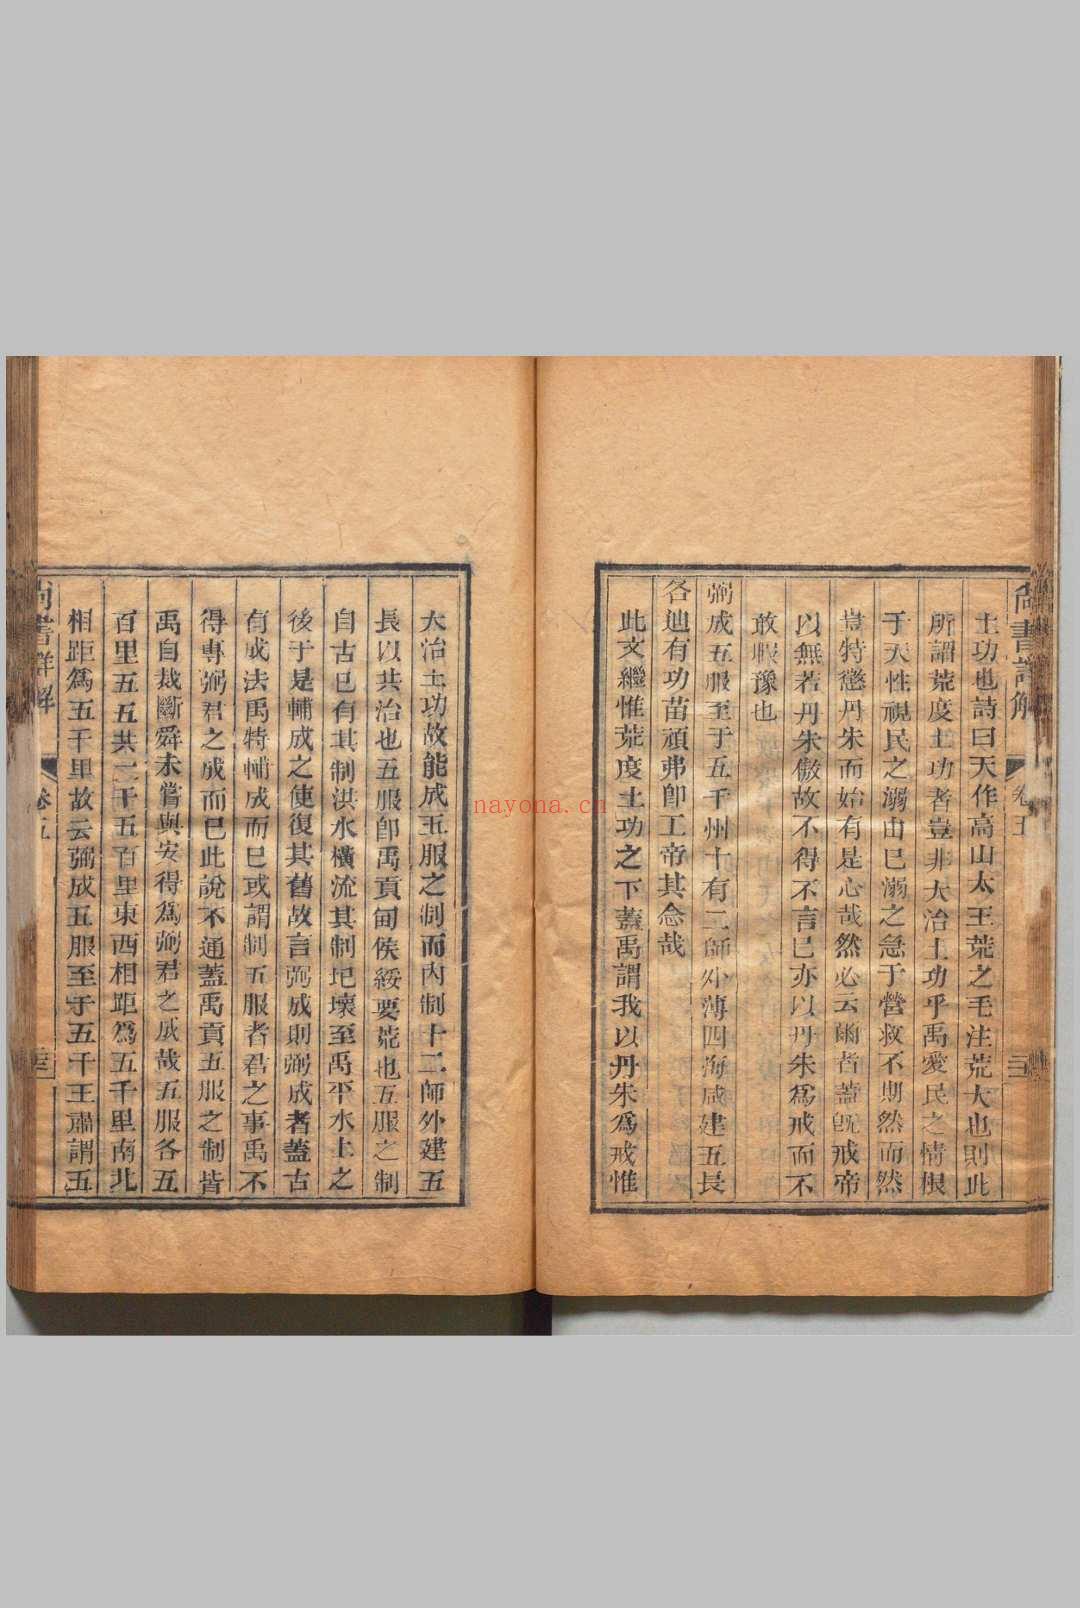 尚書詳解
卷五
土功也詩曰天作高山太王荒之毛注荒大也則此
所謂荒度土功者豈非大治土功乎禹愛民之情根
于天性視民之溺由已溺之急于營救不期然而然
豈特懲丹朱而始有是心哉然必云爾者蓋旣戒帝
以無若丹朱傲故不得不言已亦以丹朱爲戒而不
敢暇豫也
弼成五服至于五千州十有二師外薄四海咸建五長
各迪有功苗頑弗卽工帝其念哉
此文繼惟荒度土功之下蓋禹謂我以丹朱爲戒惟
大治土功故能成五服之制而內制十二師外建五
長以共治也五服卽禹貢甸侯綏要荒也五服之制
自古已有其制洪水橫流其制圮壞至禹平水土之
後于是輔成之使復其舊故言弼成則弼成者蓋古
有成法禹特輔成而已或謂制五服者君之事禹不
得專弼君之成而已此說不通蓋禹貢五服之制皆
禹自裁斷舜未嘗與安得爲弼君之成哉五服各五
百里五五共二千五百里東西相距爲五千里南北
相距爲五千里故云弼成五服至于五千王肅謂五
尚書詳解
卷五
nayona.cn